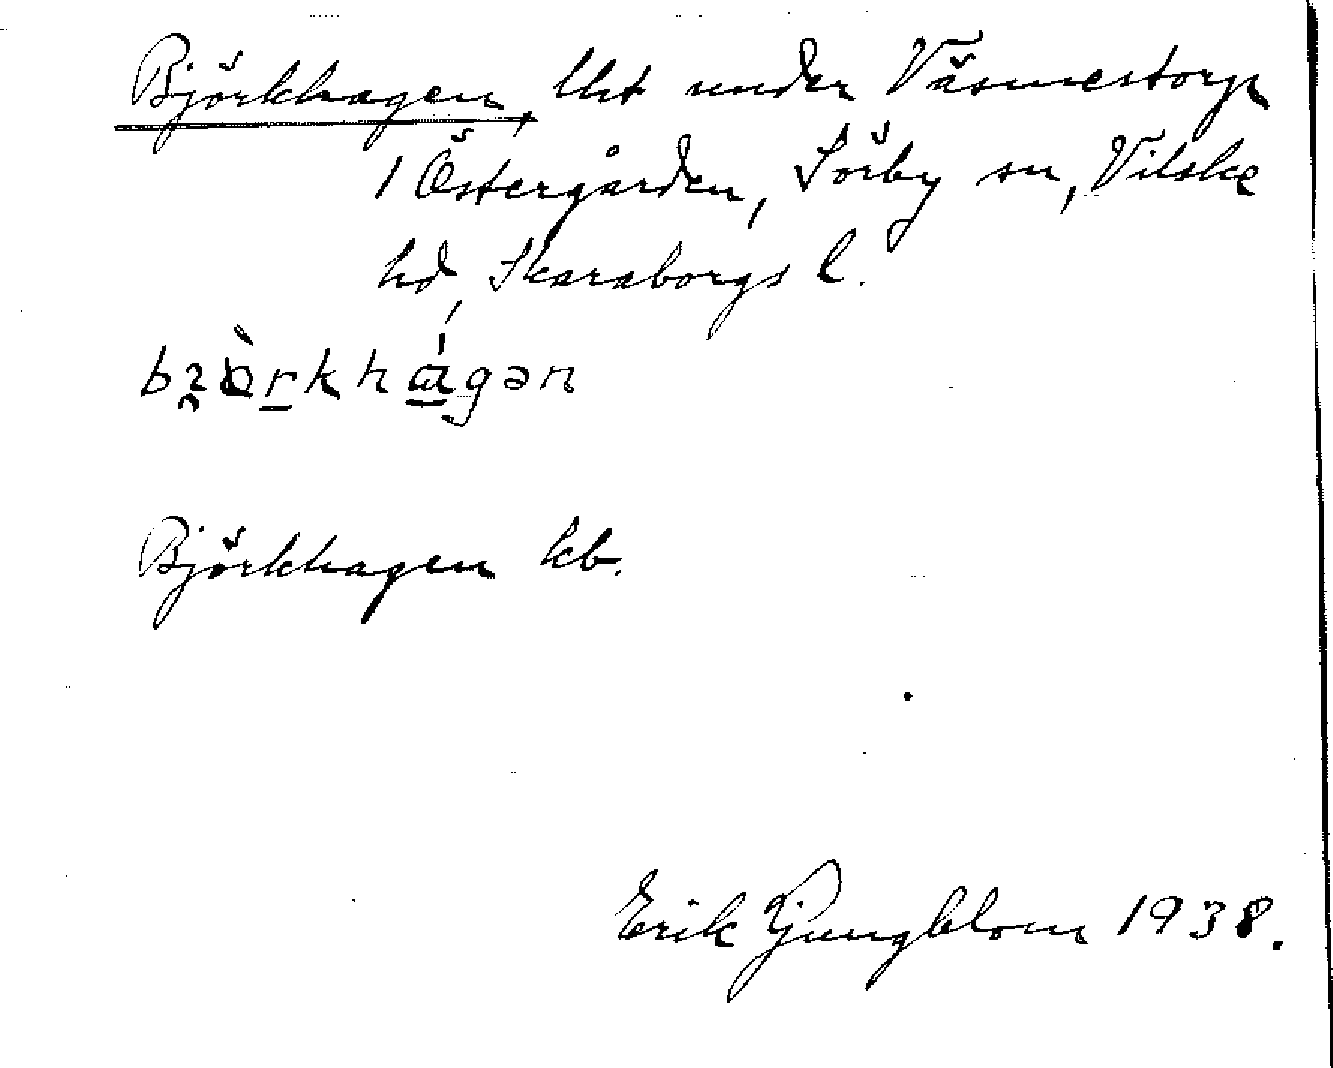 Björkhagen, lht under Väsmestorp
1 Östergården, Sörby sn, Vilske
hd, Skaraborgs l.
Björkhagen kb.
Erik Ljungblom 1938.